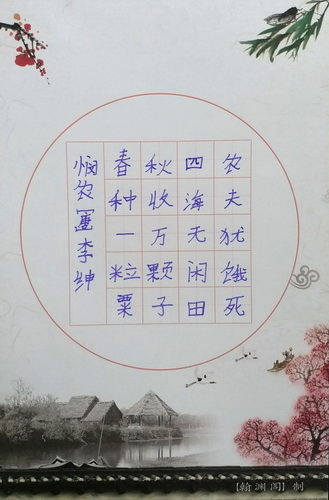 悯农[唐]李绅
春种一粒粟
秋收万颗子
四海无闲田
农夫犹饿死
[翰渊阁]制